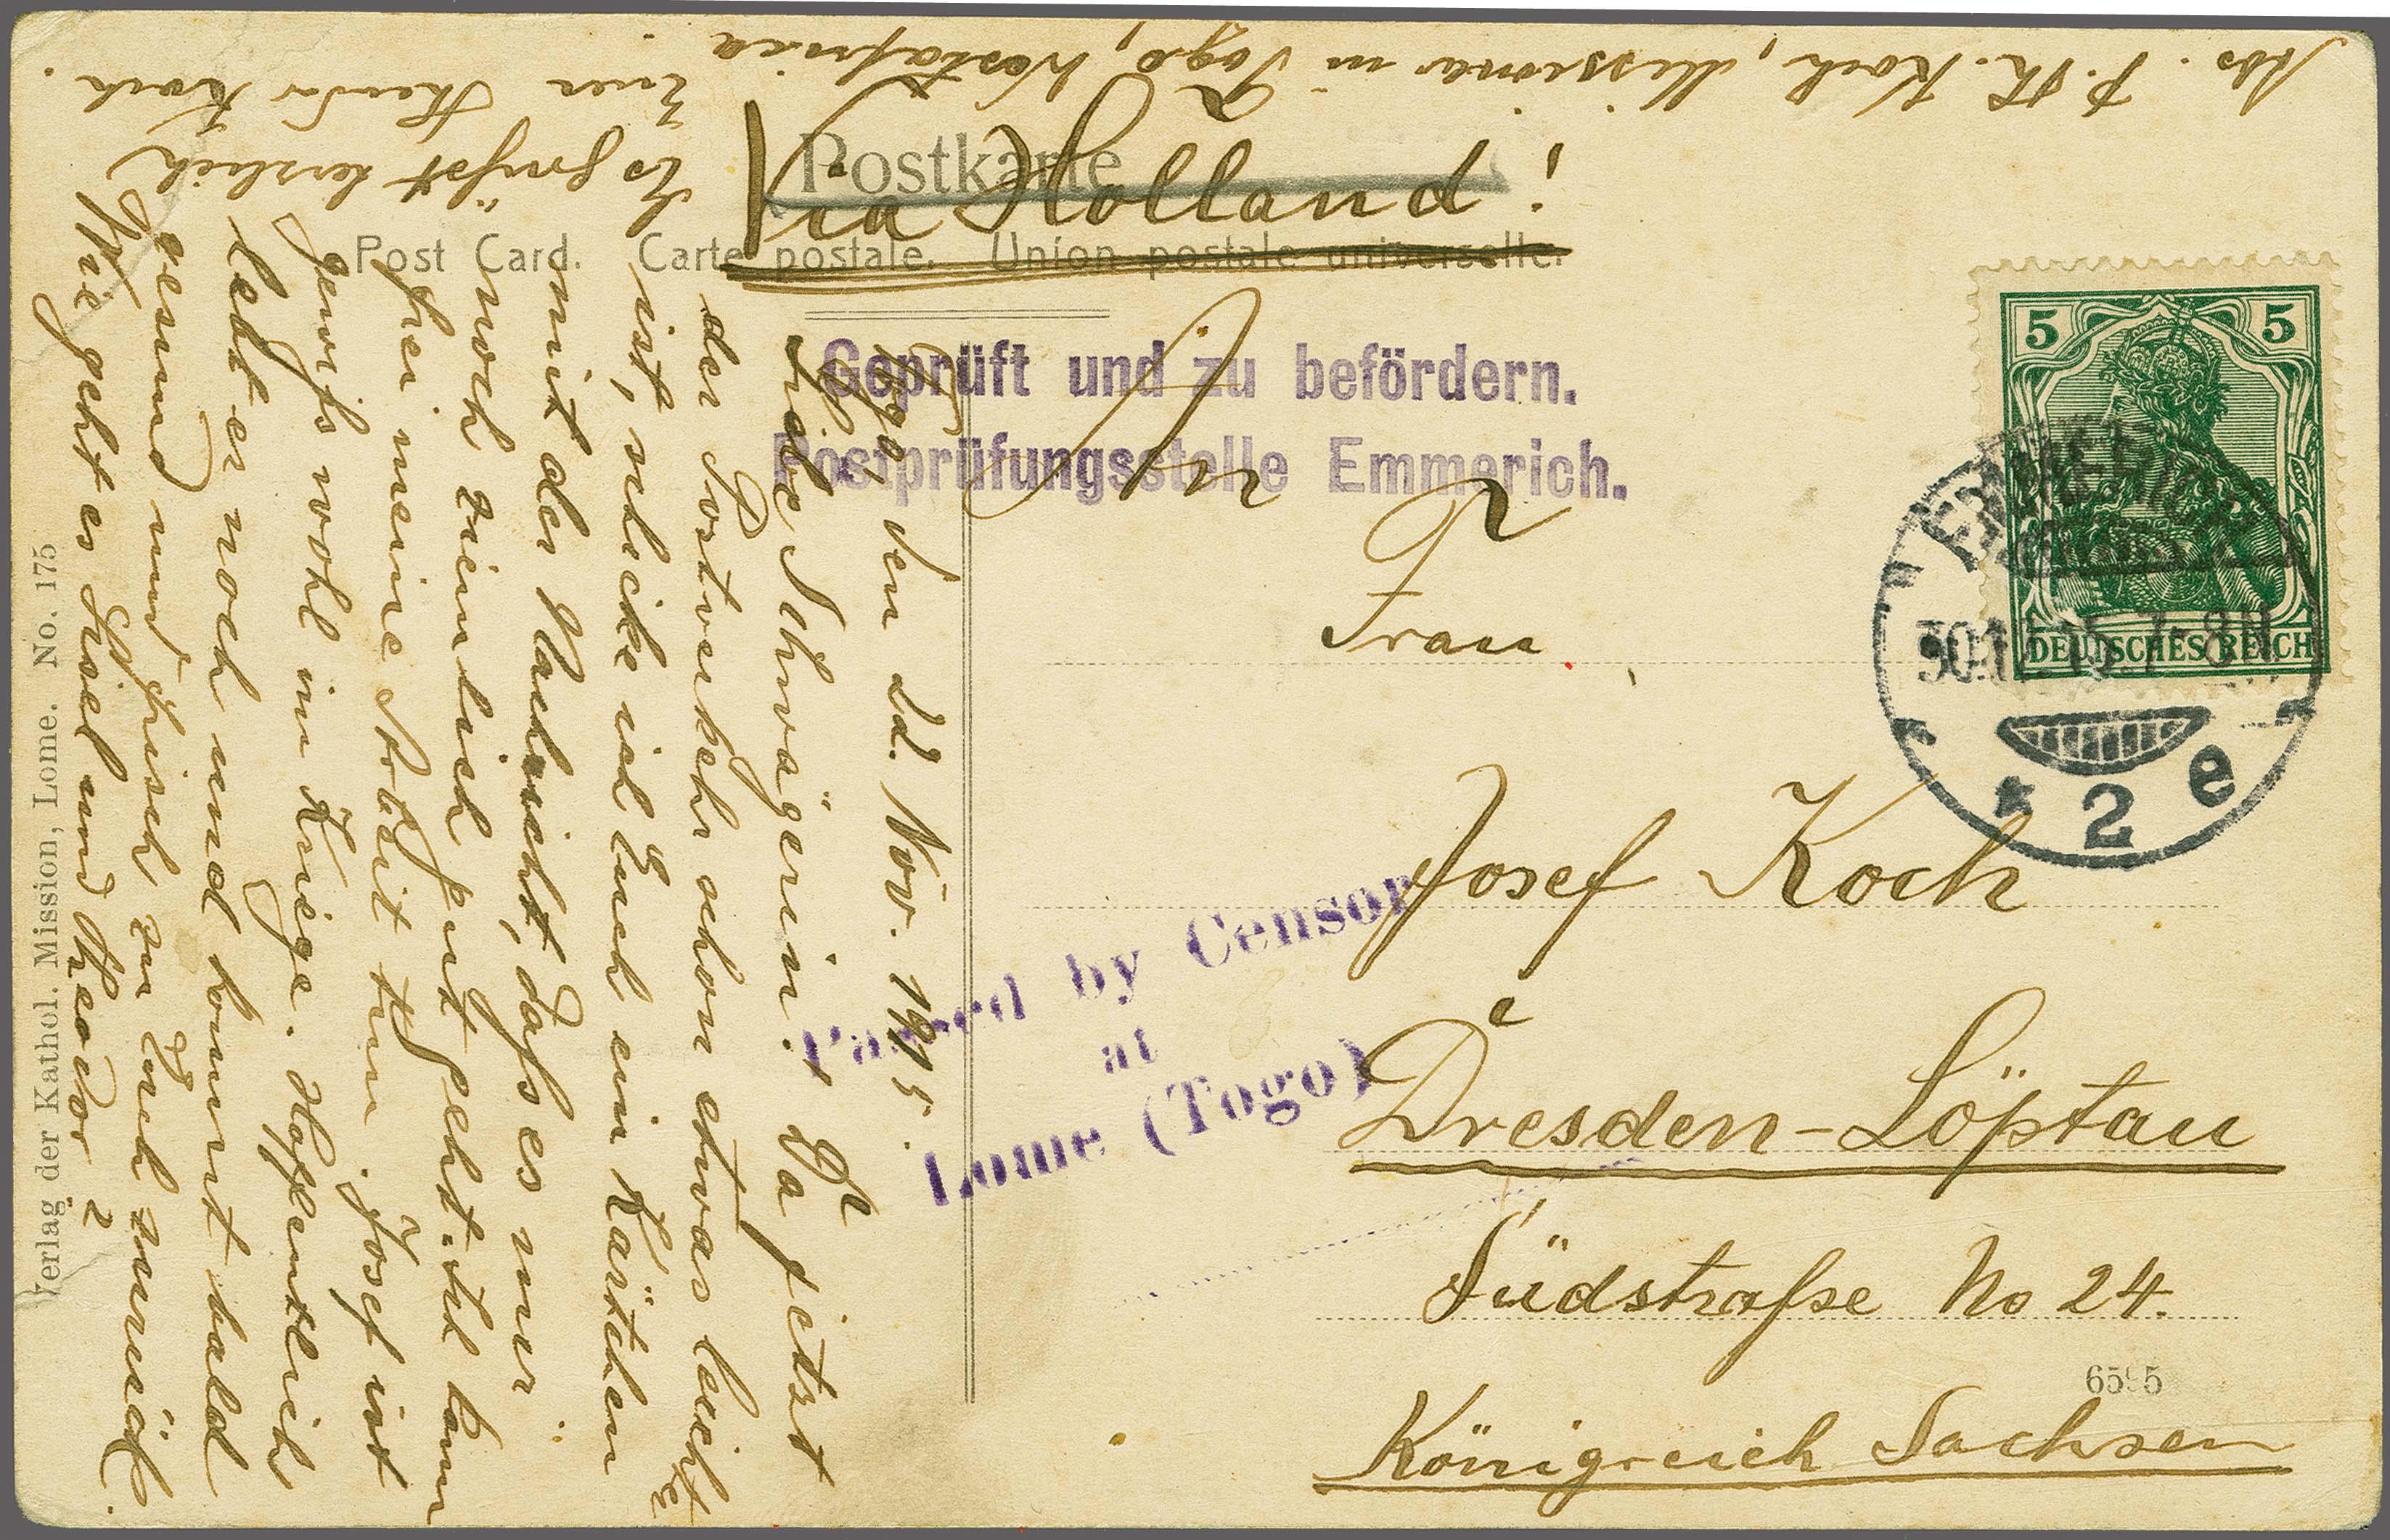 Abs. P. Th. Koch, Missionar in Togo, Westafrica.
Postkarte
Via Holland!
Post Card. Carte postale. Union postale universelle.
Geprüft und zu befördern.
Postprüfungsstelle Emmerich.
An
Frau
Josef Koch
Dresden-Löptau
Südstraße No 24.
Königreich Sachsen
5 5
DEUTSCHES REICH
EMMERICH
* 2 e
Passed by Censor
at
Lome (Togo)
6595
Togo, den 22. Nov. 1915.
Liebe Schwägerin! Da jetzt
der Postverkehr schon etwas leichter
ist, schicke ich Euch ein Kärtchen
mit der Nachricht, daß es mir
noch ziemlich gut geht. Ich kann
frei meine Arbeit tun. Josef ist
gewiß wohl im Kriege. Hoffentlich
lebt er noch und kommt bald
gesund und frisch zu Euch zurück.
Wie geht es und Theodor?
Es grüßt herzlich
Euer Theodor Koch.
Verlag der Kathol. Mission, Lome. No. 175